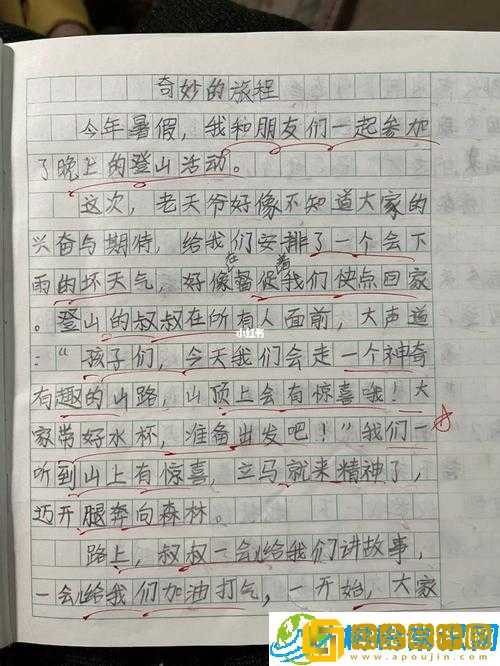 奇妙的旅程
今年暑假，我和朋友们一起参加
了晚上的登山活动。
这次，老天爷好像不知道大家的
兴奋与期待，给我们安排了一个会下
雨的坏天气，好像在督促着我们快点回家
。登山的叔叔在所有人面前，大声道
：“孩子们，今天我们会走一个神奇
有趣的山路，山顶上会有惊喜哦！大
家带好水杯，准备出发吧！”我们一
听到山上有惊喜，立马就来精神了，
迈开腿奔向森林。
路上，叔叔一会给我们讲故事，
一会给我们加油打气，一开始，大家
小红书
www.apoujin.com